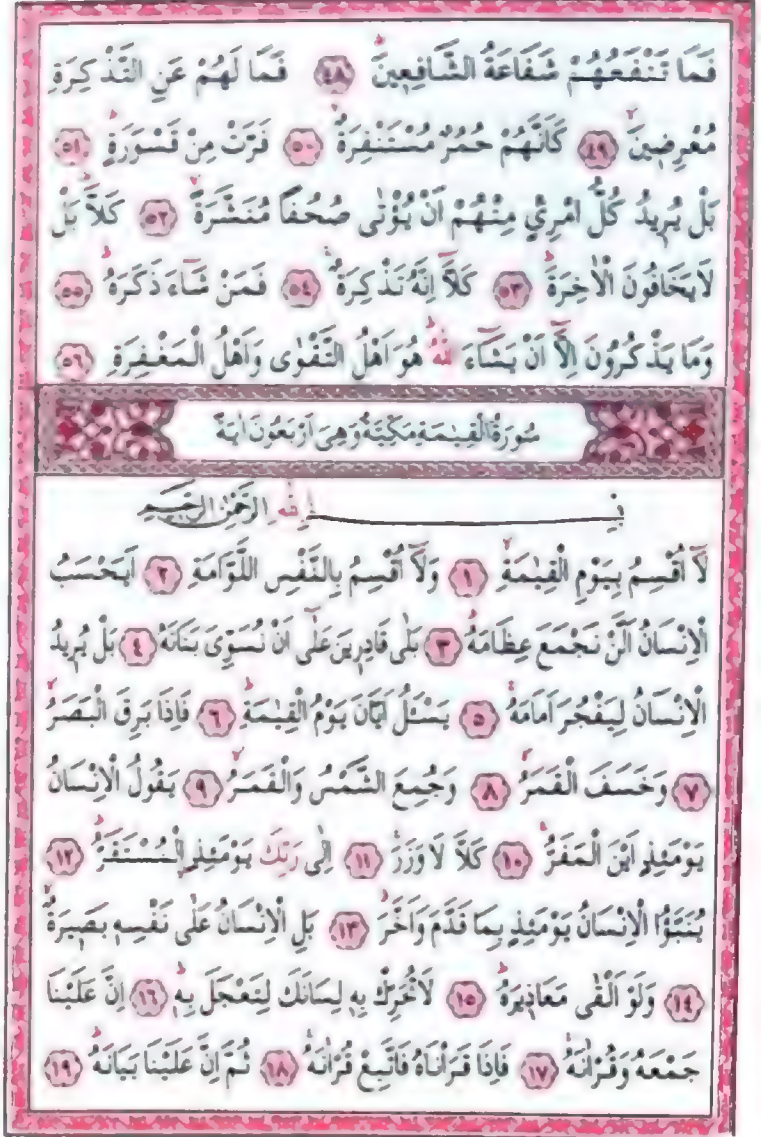 فَمَا تَنْفَعُهُمْ شَفَاعَةُ الشَّافِعِينَۜ ٤٨ فَمَا لَهُمْ عَنِ التَّذْكِرَةِ
مُعْرِضِينَۙ ٤٩ كَاَنَّهُمْ حُمُرٌ مُسْتَنْفِرَةٌۙ ٥٠ فَرَّتْ مِنْ قَسْوَرَةٍۜ ٥١
بَلْ يُرِيدُ كُلُّ امْرِئٍ مِنْهُمْ اَنْ يُؤْتٰى صُحُفًا مُنَشَّرَةًۙ ٥٢ كَلَّاۜ بَلْ
لَا يَخَافُونَ الْاٰخِرَةَۜ ٥٣ كَلَّٓا اِنَّهُ تَذْكِرَةٌۚ ٥٤ فَمَنْ شَٓاءَ ذَكَرَهُۜ ٥٥
وَمَا يَذْكُرُونَ اِلَّٓا اَنْ يَشَٓاءَ اللّٰهُۜ هُوَ اَهْلُ التَّقْوٰى وَاَهْلُ الْمَغْفِرَةِ ٥٦
سُورَةُ الْقِيٰمَةِ مَكِّيَّةٌ وَهِيَ اَرْبَعُونَ اٰيَةً
بِسْــــــــمِ اللّٰهِ الرَّحْمٰنِ الرَّحِيمِ
لَٓا اُقْسِمُ بِيَوْمِ الْقِيٰمَةِۙ ١ وَلَٓا اُقْسِمُ بِالنَّفْسِ اللَّوَّامَةِ ٢ اَيَحْسَبُ
الْاِنْسَانُ اَلَّنْ نَجْمَعَ عِظَامَهُۜ ٣ بَلٰى قَادِرِينَ عَلٰٓى اَنْ نُسَوِّيَ بَنَانَهُ ٤ بَلْ يُرِيدُ
الْاِنْسَانُ لِيَفْجُرَ اَمَامَهُۚ ٥ يَسْـَٔلُ اَيَّانَ يَوْمُ الْقِيٰمَةِۜ ٦ فَاِذَا بَرِقَ الْبَصَرُۙ
٧ وَخَسَفَ الْقَمَرُۙ ٨ وَجُمِعَ الشَّمْسُ وَالْقَمَرُۙ ٩ يَقُولُ الْاِنْسَانُ
يَوْمَئِذٍ اَيْنَ الْمَفَرُّۚ ١٠ كَلَّا لَا وَزَرَۜ ١١ اِلٰى رَبِّكَ يَوْمَئِذٍ الْمُسْتَقَرُّۜ ١٢
يُنَبَّؤُا الْاِنْسَانُ يَوْمَئِذٍ بِمَا قَدَّمَ وَاَخَّرَۜ ١٣ بَلِ الْاِنْسَانُ عَلٰى نَفْسِهِ بَصِيرَةٌۙ
١٤ وَلَوْ اَلْقٰى مَعَاذِيرَهُۜ ١٥ لَا تُحَرِّكْ بِهِ لِسَانَكَ لِتَعْجَلَ بِهِۜ ١٦ اِنَّ عَلَيْنَا
جَمْعَهُ وَقُرْاٰنَهُۚ ١٧ فَاِذَا قَرَأْنَاهُ فَاتَّبِعْ قُرْاٰنَهُۚ ١٨ ثُمَّ اِنَّ عَلَيْنَا بَيَانَهُۜ ١٩